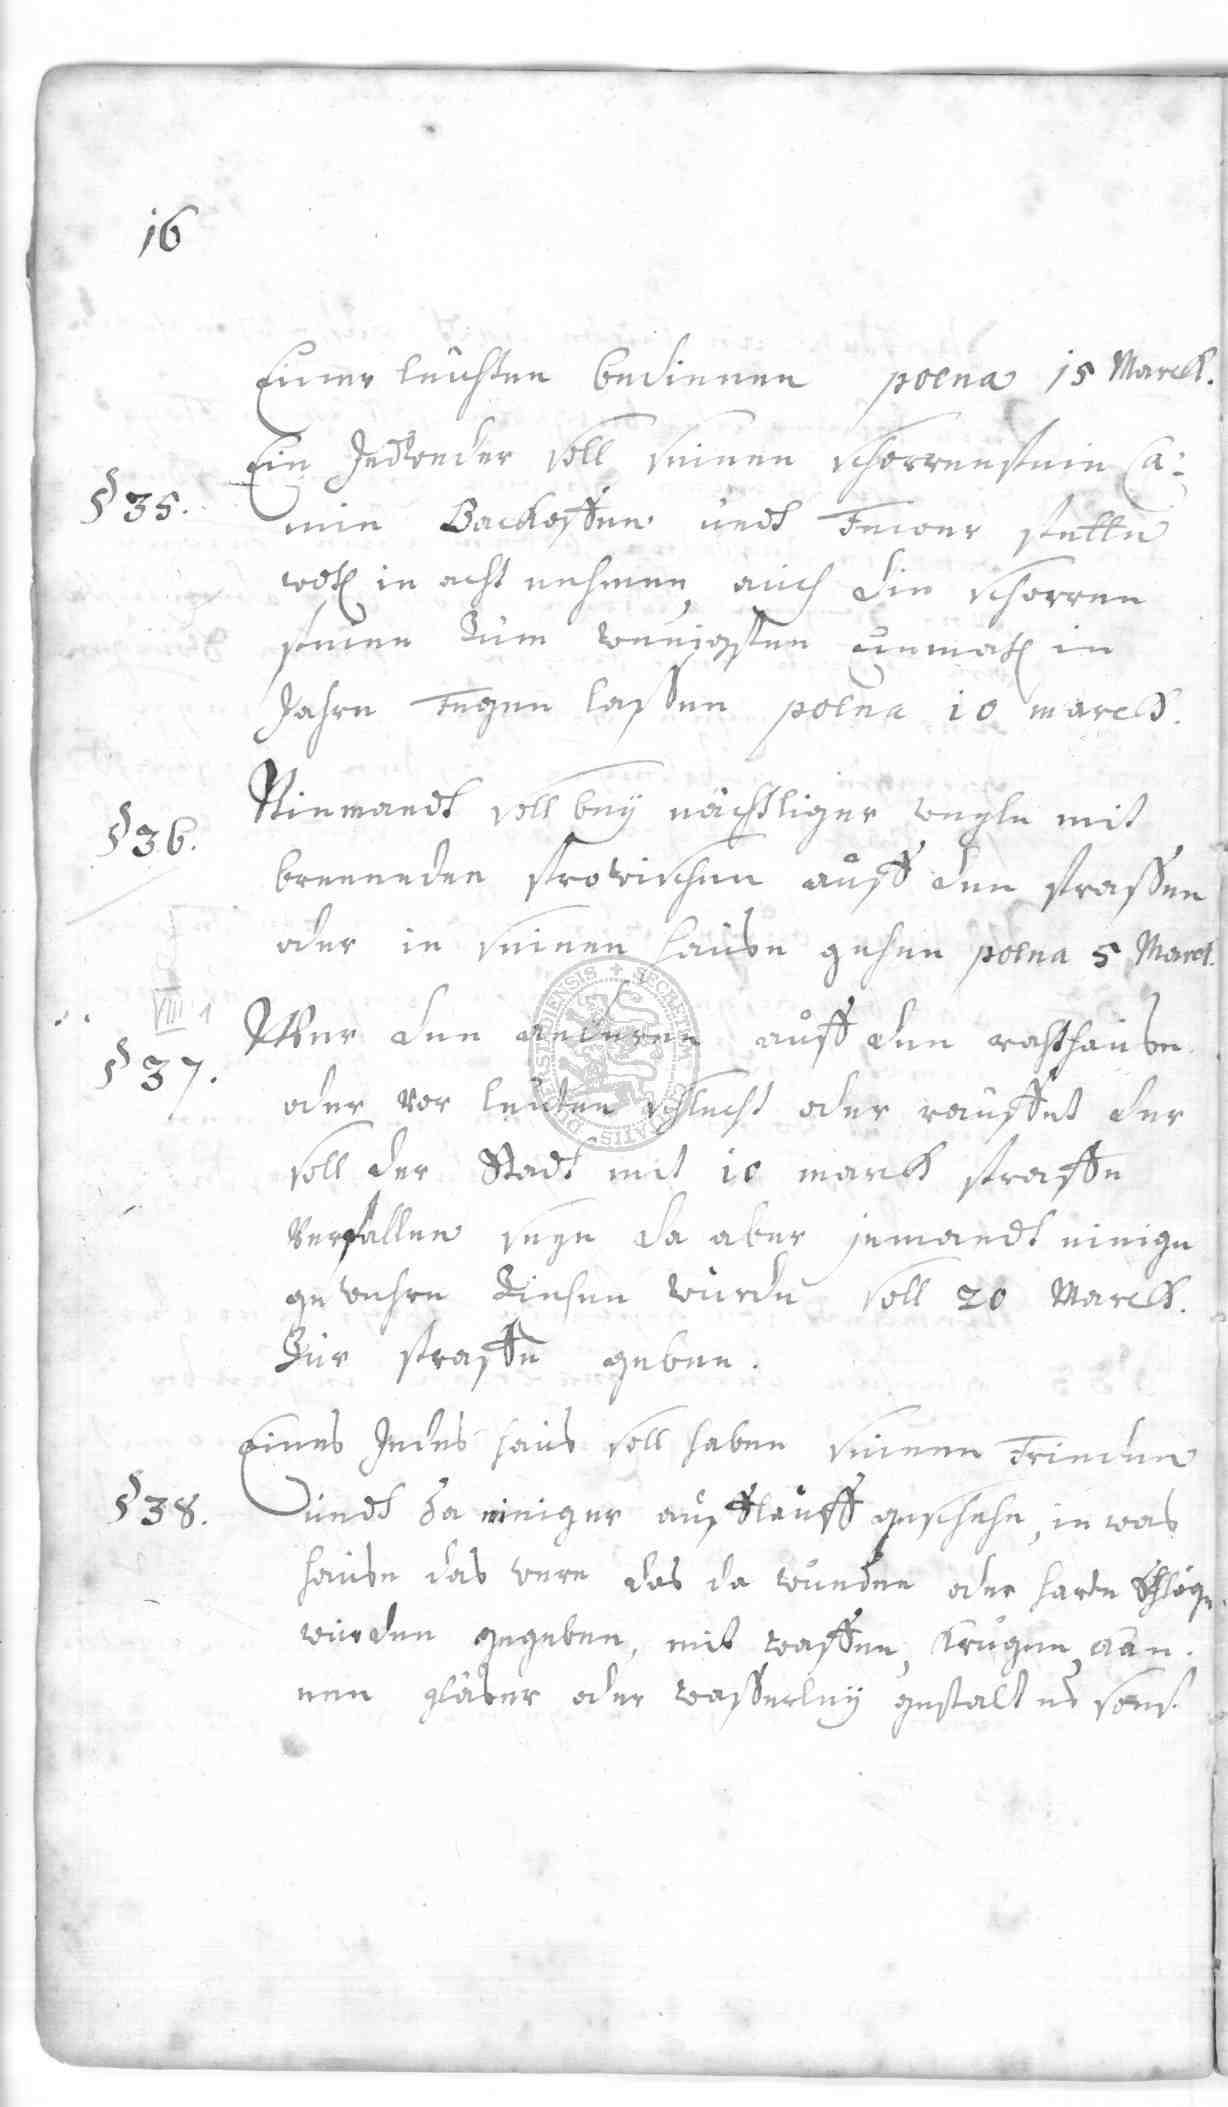 16
Einer leuchten bedienen poena 15 Marck.
§ 35.
Ein Jedweder soll seinen schorrenstein Ca-
min Backoffen undt Fewer stette
woll in acht nehmen, auch die schorren
steine Zum wenigsten einmahl in
Jahre Fegen lassen poena 10 marck.
§ 36.
Niemandt soll bey nächtliger weyle mit
brenneden strowischen auff den strassen
oder in seinen hause gehen poena 5 Marck.
VIIII 1
§ 37.
Wer den anderen auff den rathhause
oder vor leuten schlecht oder rauffet der
soll der Stadt mit 10 marck straffe
verfallen seyn da aber jemandt einige
gewehre Ziehen würde soll 20 Marck.
Zur straffe geben.
§ 38.
Eines Jedes haus soll haben seinen Frieden
undt da einiger aufflauff geschehe, in was
hause das were das da wunden oder harte Schläge
würden gegeben, mit waffen, Krügen, Kan-
nen gläser oder wasserley gestalt es sonst
SECRETUM CIVITATIS